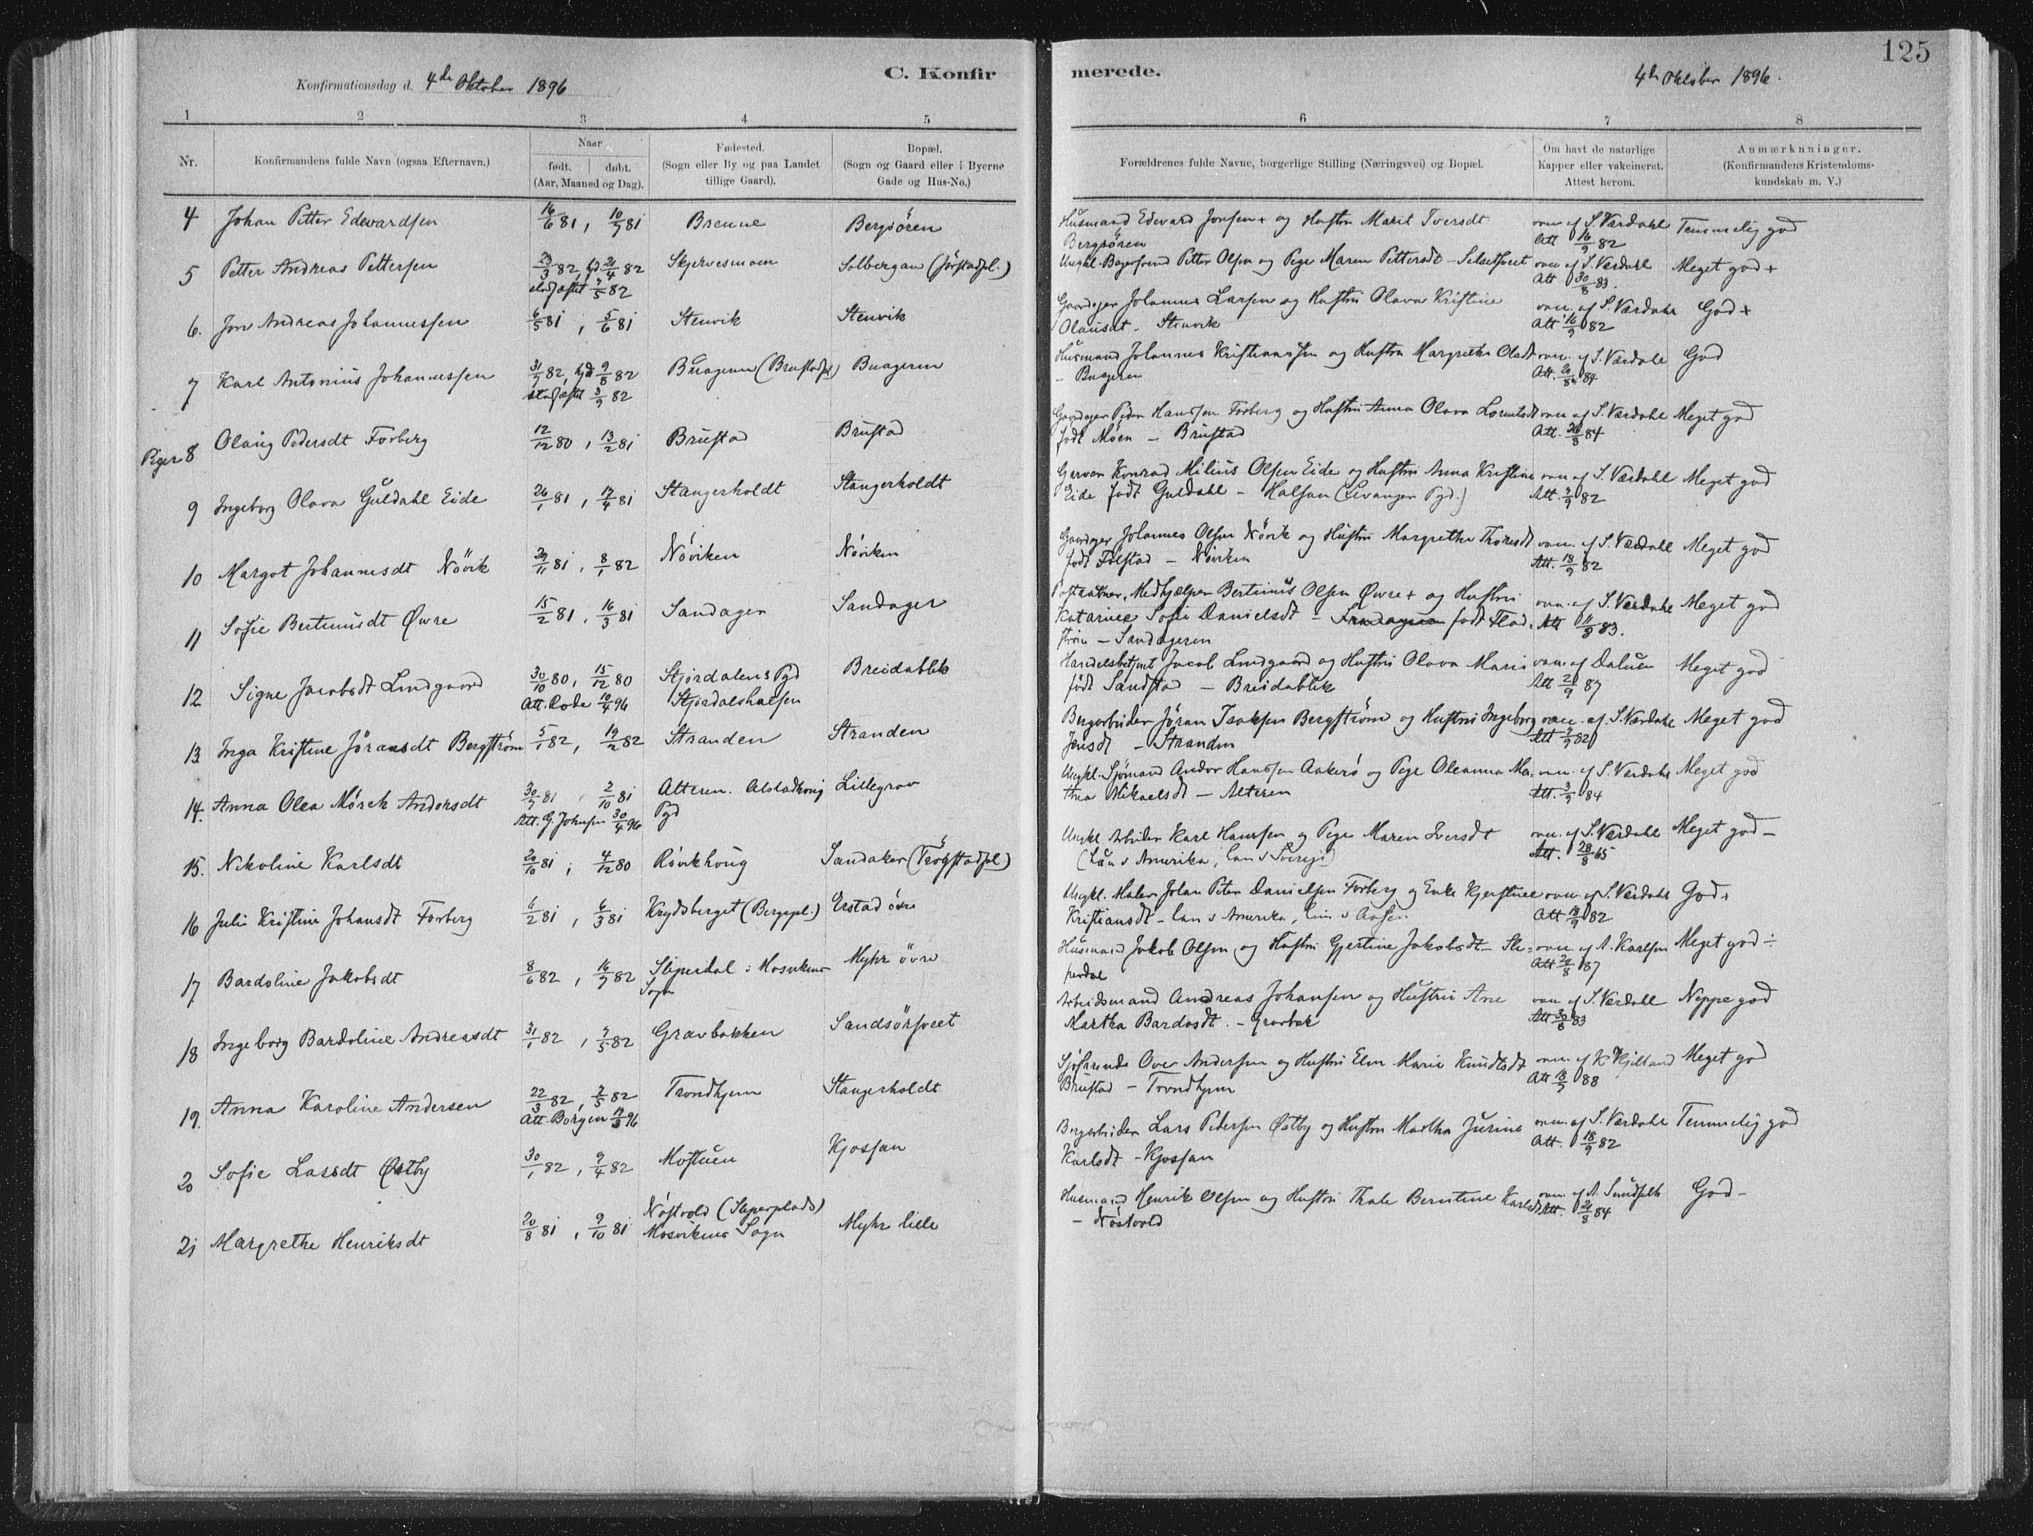 125
C. Konfirmerede.
Konfirmationsdag d. 4de Oktober 1896
4de Oktober 1896.
1 2 3 4 5 6 7 8
Nr.
Konfirmandens fulde Navn (ogsaa Efternavn.)
Naar
født. døbt.
(Aar, Maaned og Dag).
Fødested.
(Sogn eller By og paa Landet
tillige Gaard).
Bopæl.
(Sogn og Gaard eller i Byerne
Gade og Hus-No.)
Forældrenes fulde Navne, borgerlige Stilling (Næringsvei) og Bopæl.
Om havt de naturlige
Kopper eller vakcineret.
Attest herom.
Anmærkninger.
(Konfirmandens Kristendoms-
kundskab m. V.)
4 Johan Petter Edevardsen 16/6 81, 10/7 81 Brenne Bergsören Husmand Edevard Jonsen + og Hustru Marit Iversdt vacc. af S. Værdahl Temmelig god
Bergsören Att 16/9 82
5 Petter Andreas Pettersen 23/3 82, hjd 21/4 82 Skjervesmoen Solbergan (Jörstadpl.) Ungkl. Petter Olsen og Pige Maren Pettersdt vac. af S. Værdahl Meget god +
stadfæstet 7/5 82 Att 30/8 83.
6. Jon Andreas Johannessen 6/5 81, 5/6 81 Stenvik Stenvik Gaardeger Johannes Larsen og Hustru Olava Kristine vac. af S. Værdahl God +
Olausdt. Stenvik Att 16/9 82
7 Karl Antonius Johannessen 31/7 82, hjd 9/8 82 Buageren (Brustadpl) Buageren Husmand Johannes Kristianssen og Hustru Margrethe Olsdt vac. af S. Værdahl God
stadfæstet 3/9 82 – Buageren Att. 84
Piger 8 Olaug Pedersdt Forberg 12/12 80, 13/2 81 Brustad Brustad Gaardeger Peder Hanssen Forberg og Hustru Anna Olava Lorntsdt vac. af S. Værdahl Meget god
født Moen – Brustad Att. 84
9 Ingeborg Olava Guldahl Eide 26/1 81, 17/4 81 Stangerholdt Stangerholdt Garver Konrad Milius Olsen Eide og Hustru Anna Kristine vac. af S. Værdahl Meget god
Eide født Guldahl – Halsan (Levanger Pgd.) Att. 82
10 Margot Johannesdt Növik 29/11 81, 8/1 82 Növiken Növiken Gaardeger Johannes Olsen Növik og Hustru Margrethe Thoresdt vac. af S. Værdahl Meget god
født Folstad – Növiken Att. 18/9 82
11 Sofie Bertinusdt Øvre 15/2 81, 16/3 81 Sandager Sandager Medhjælper Bertinus Olsen Øvre + og Hustru vac. af S. Værdahl Meget god
Katarine Sofie Danielsdt – født Flad-
ström – Sandageren Att 11/9 83.
12 Signe Jacobsdt Lindgaard 30/10 80, 15/12 80 Stjördalens Pgd Breidablik Handelsbetjent Jacob Lindgaard og Hustru Olava Marie vac. af Daluen Meget god
Att. Rode 10/4 96 Stjördalshalsen født Sandstad – Breidablik Att 21/9 87
13 Inga Kristine Jöransdt Bergström 5/1 82, 19/2 82 Stranden Stranden Bergarbeider Jöran Isaksen Bergström og Hustru Ingeborg vac. af S. Værdahl Meget god
Jensdt – Stranden Att 82
14. Anna Olea Mörck Andorsdt 30/7 81, 2/10 81 Alteren. Alstadhoug Lillegrav Ungkl. Sjömand Andor Hanssen Aakerö og Pige Oleanna Mar- vac. af S. Værdahl Meget god
Att. G. Johnsen 30/4 96 Pgd thea Mikaelsdt – Alteren Att. 3/9 84
15. Nikoline Karlsdt 20/10 81, 4/12 80 Rövikhoug Sandaker (Trögstadpl) Ungkl Arbeider Karl Hanssen og Pige Maren Iversdt vac. af S. Værdahl Meget god –
(han i Amerika, hun i Sverige) Att. 28/8
16 Julie Kristine Johansdt Forberg 6/2 81, 6/3 81 Krydsberget (Bergspl.) Ystad övre Ungkl. Maler Johan Peter Danielsen Forberg og Enke Kjerstine vac. af S. Værdahl God +
Kristiansdt – han i Amerika, hun i Aasen Att 18/9 82
17 Bardoline Jakobsdt 8/6 82, 16/7 82 Sliperdal i Mosvikens Myhr övre Husmand Jakob Olsen og Hustru Gjertine Jakobsdt – Sli- vac. af A. Karlsen Meget god ÷
Sogn perdal Att 24/8 87
18 Ingeborg Bardoline Andreasdt 31/1 82, 7/5 82 Gravbakken Sandsörsvet Arbeidsmand Andreas Johansen og Hustru Ane vac. af S. Værdahl Neppe god
Martha Bardosdt. – Gravbak Att 30/8 83
19. Anna Karoline Andersen 22/3 82, 7/5 82 Trondhjem Stangerholdt Ove Andersen og Hustru Elen Marie Knudsdt vac. af K. Kjelland Meget god
Att. Borgen 96 Brustad – Trondhjem Att 88
20 Sofie Larsdt Østby 30/1 82, 9/4 82 Mostuen Kjosfan Bergarbeider Lars Pedersen Østby og Hustru Martha Jurine vac. af S. Værdahl Temmelig god
Karlsdt – Kjosfan Att. 18/9 82
21 Margrethe Henriksdt 20/8 81, 9/10 81 Nöstvold (Sliperplads) Myhr lille Husmand Henrik Olsen og Hustru Thale Berntine Karlsdt vac. af A. Sundseth God –
Mosvikens Sogn – Nöstvold Att. 84